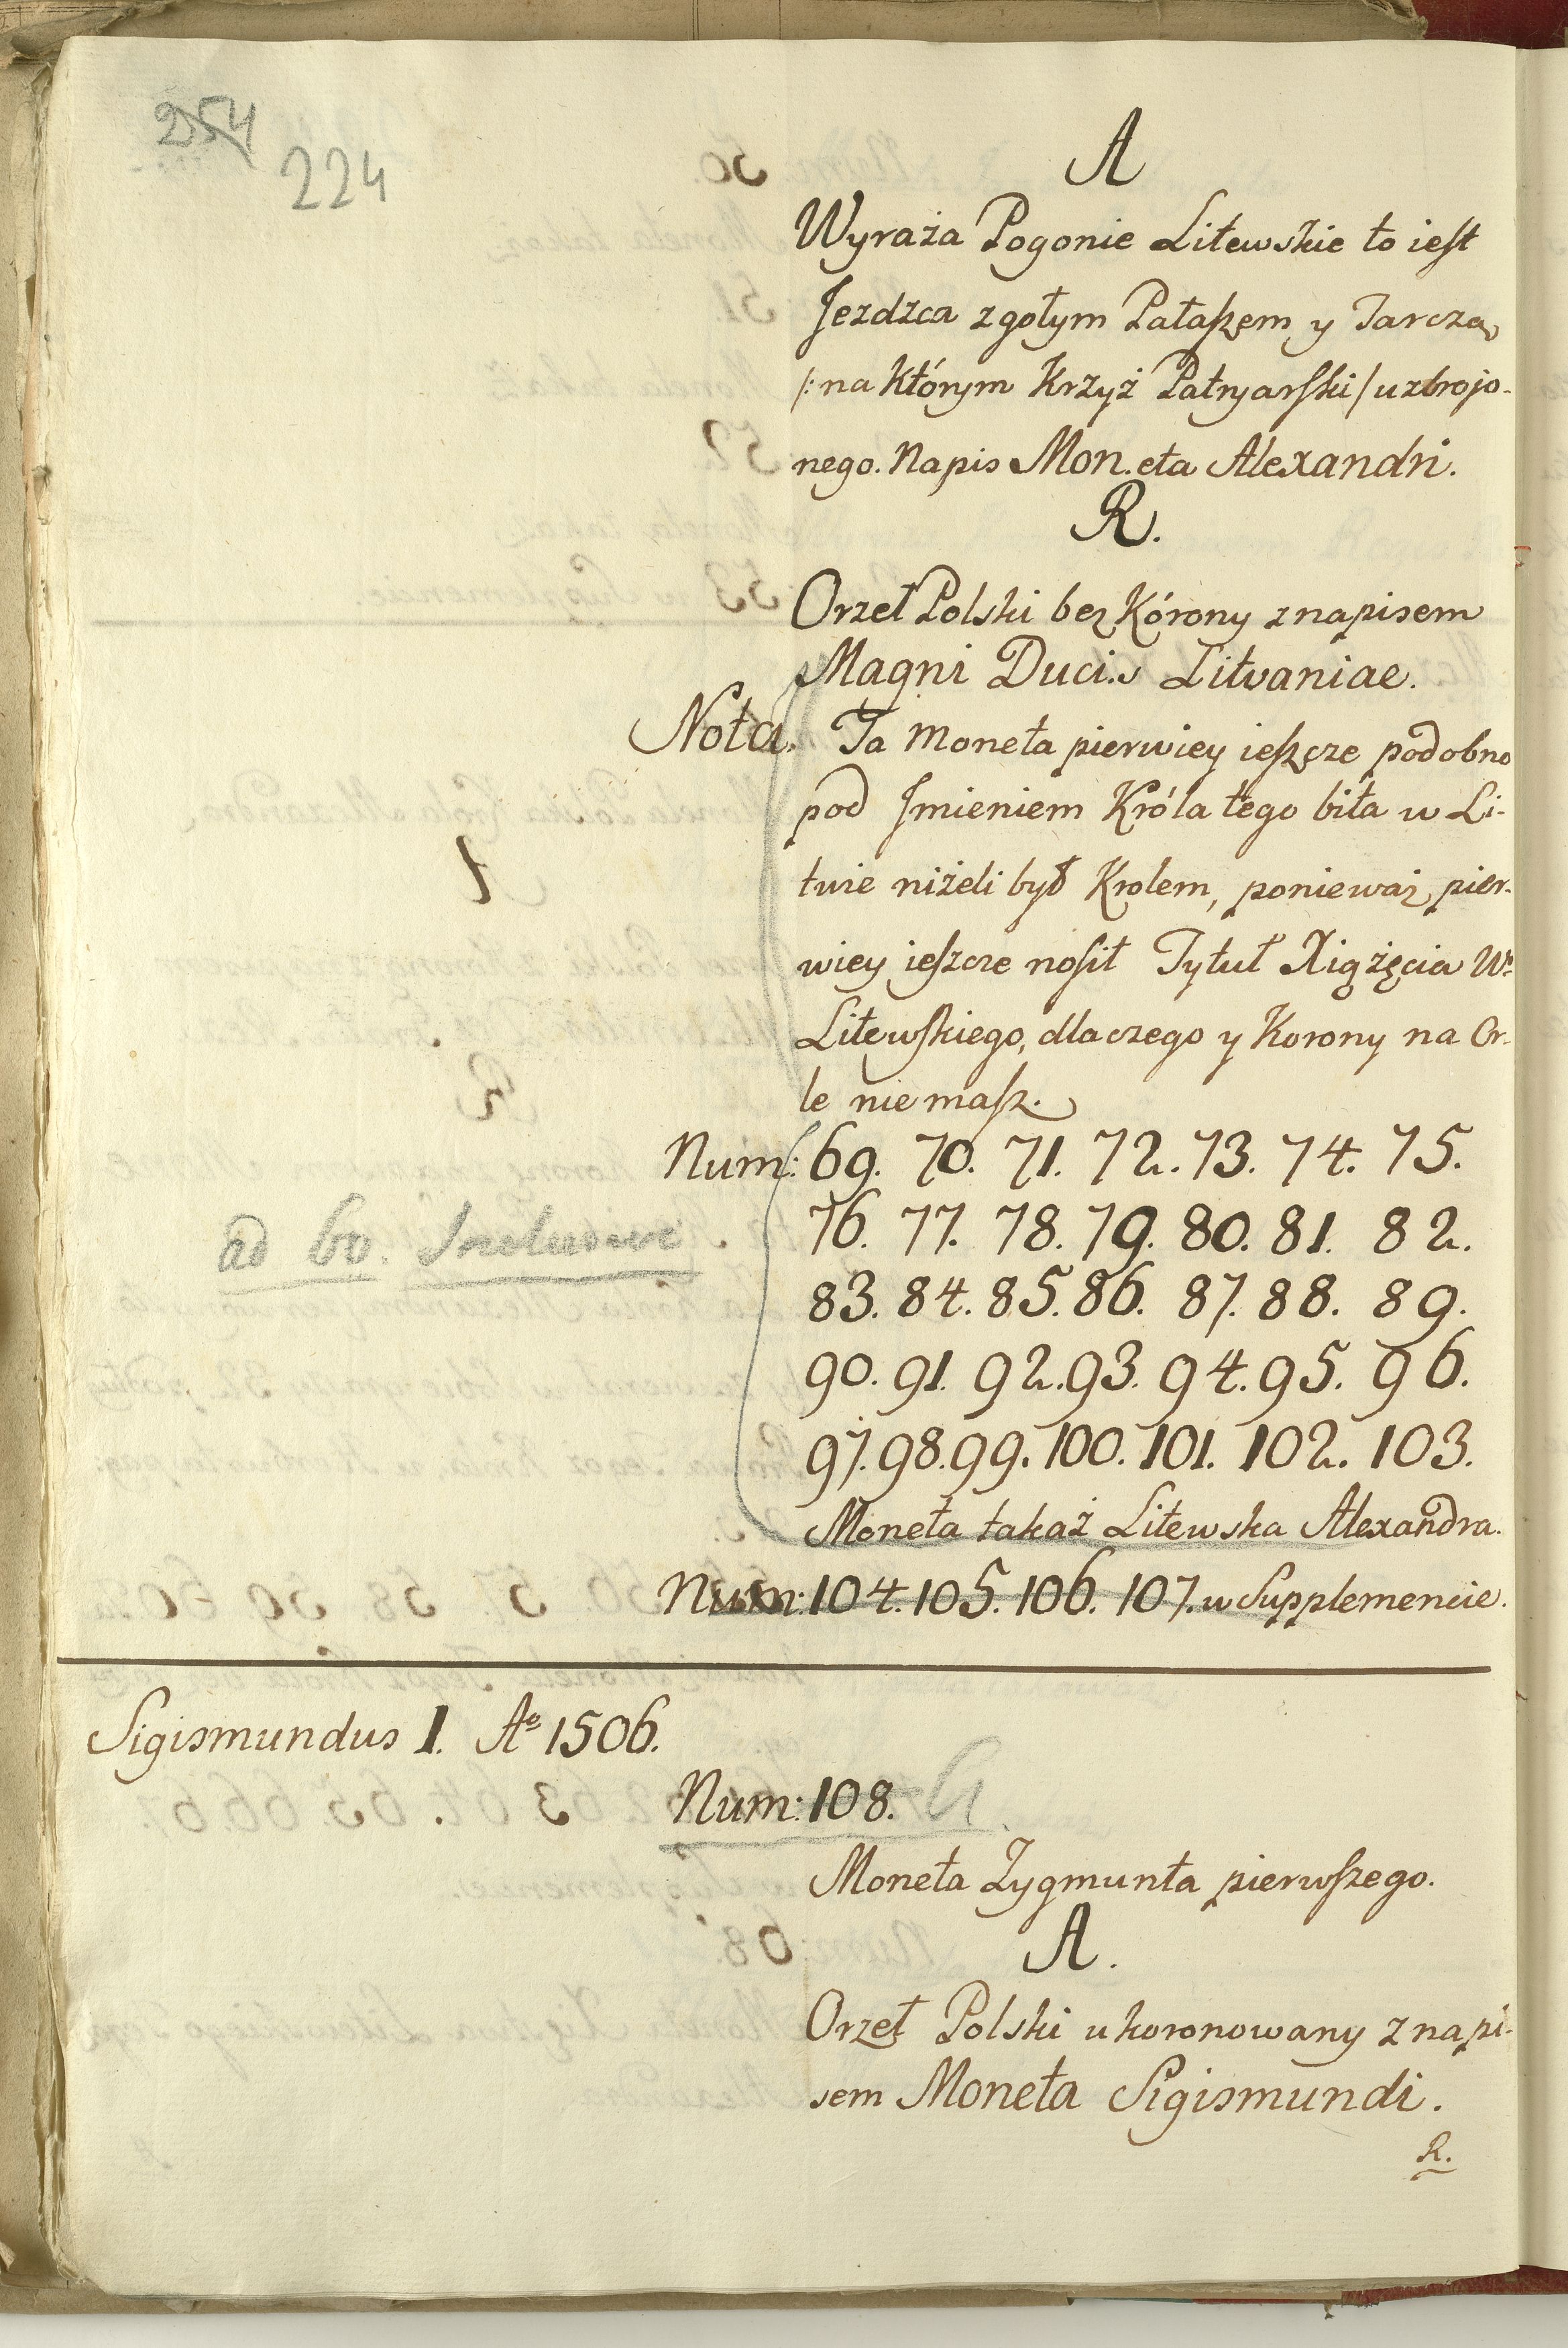 254
224
A
Wyraża Pogonie Litewskie to iest
Jezdzca z gołym Pałaszem y Tarczą
/: na którym Krzyż Patryarski / uzbrojo-
nego. Napis Mon.eta Alexandri.
R.
Orzeł Polski bez Kórony z napisem
Magni Duci.s Litvaniae.
Nota. Ta moneta pierwiey ieszcze podobno
pod Jmieniem Króla tego biła w Li-
twie niżeli był Krolem, ponieważ pier-
wiey ieszcze nosił Tytuł Xiążęcia Wo
Litewskiego, dlaczego y Korony na Or-
le nie masz.
Num: 69. 70. 71. 72. 73. 74. 75.
ad 60. Inclusive . 76. 77. 78. 79. 80. 81. 82.
83. 84. 85. 86. 87. 88. 89.
90. 91. 92. 93. 94. 95. 96.
97. 98. 99. 100. 101. 102. 103.
Moneta takaż Litewska Alexandra.
Num: 104. 105. 106. 107. w Supplemencie.
Sigismundus I. Ao 1506.
Num: 108.
Moneta Zygmunta pierwszego.
A.
Orzeł Polski ukoronowany z napi-
sem Moneta Sigismundi.
R.